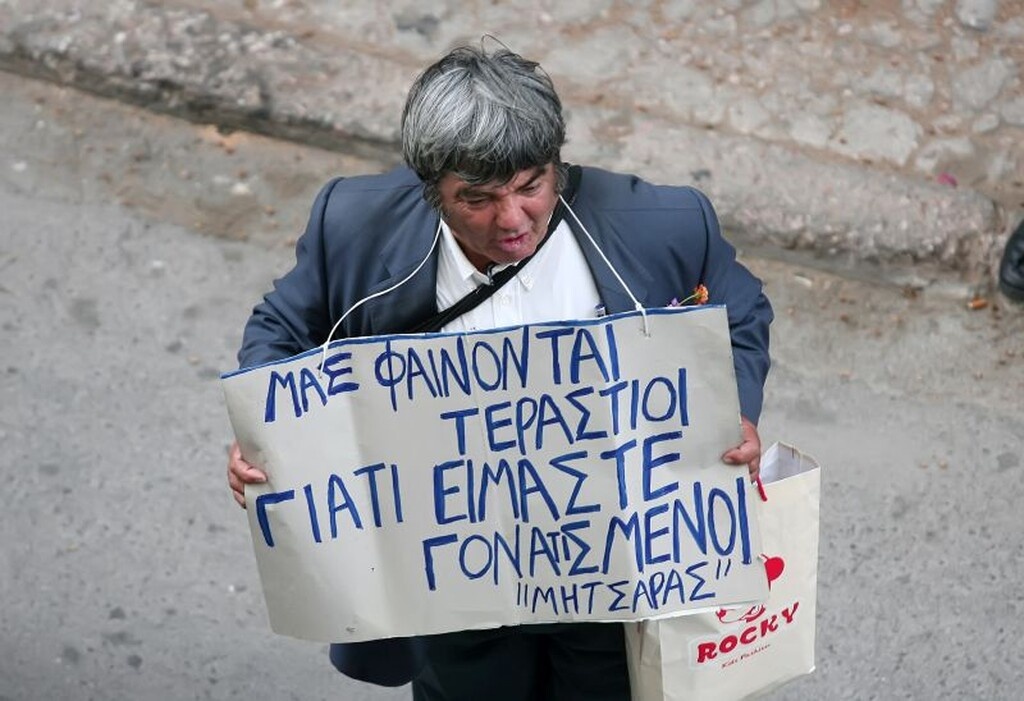 ΜΑΣ ΦΑΙΝΟΝΤΑΙ
ΤΕΡΑΣΤΙΟΙ
ΓΙΑΤΙ ΕΙΜΑΣΤΕ
ΓΟΝΑΤΙΣΜΕΝΟΙ
"ΜΗΤΣΑΡΑΣ"
ROCKY
Kids Fashion